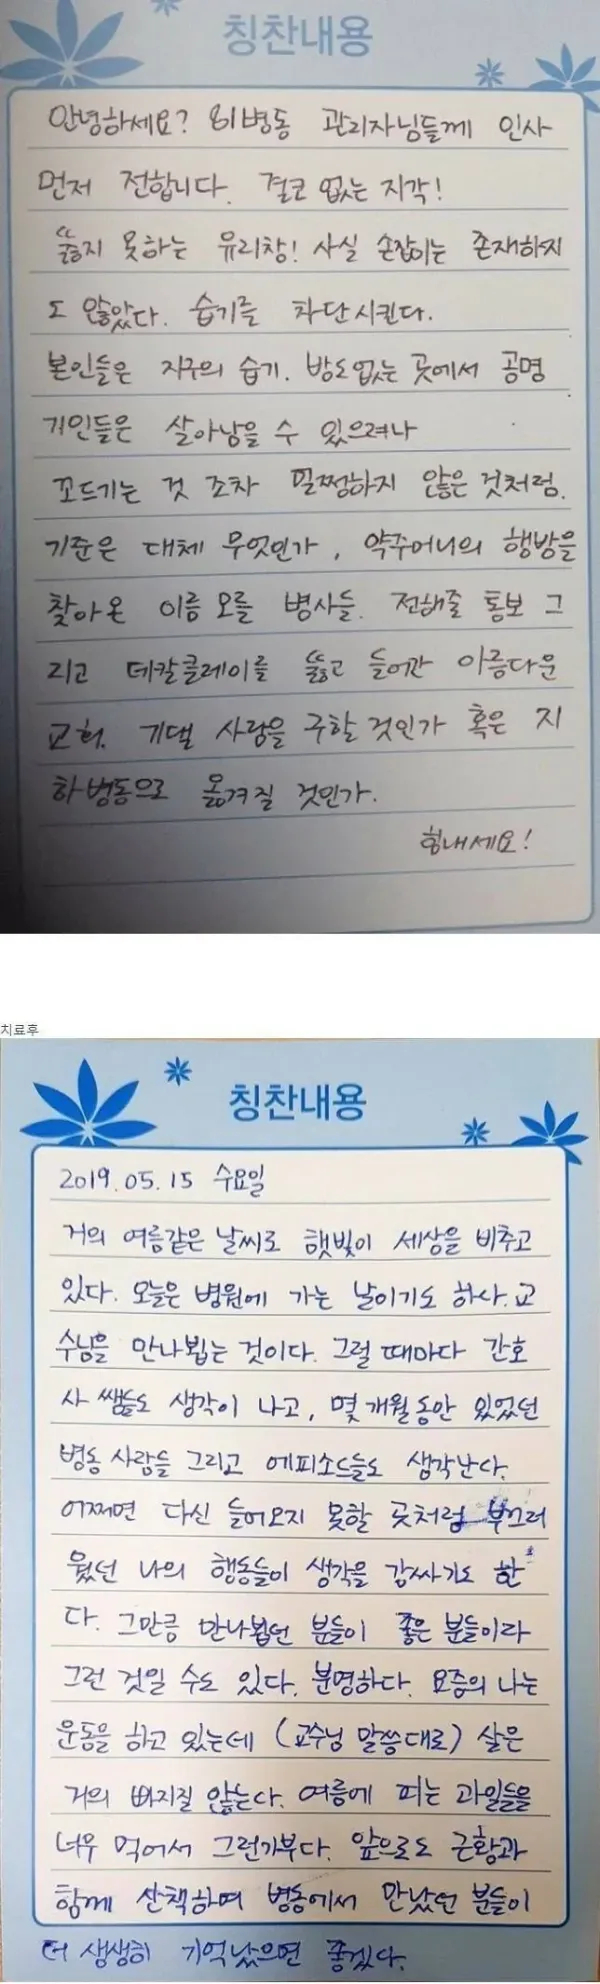 칭찬내용
안녕하세요? 81병동 관리자님들께 인사
먼저 전합니다. 결코 없는 지각!
뚫지 못하는 유리창! 사실 손잡이는 존재하지
도 않았다. 습기를 차단시킨다.
본인들은 지구의 습기. 방도없는 곳에서 공명
기인들은 살아남을 수 있으려나
꼬드기는 것 조차 멀쩡하지 않은 것처럼.
기준은 대체 무엇인가, 약주머니의 행방을
찾아온 이름 모를 병사들. 전해줄 통보 그
리고 데칼클레이를 뚫고 들어간 아름다운
교회. 기댈 사람을 구할 것인가 혹은 지
하병동으로 옮겨질 것인가.
힘내세요!
치료후
칭찬내용
2019.05.15 수요일
거의 여름같은 날씨로 햇빛이 세상을 비추고
있다. 오늘은 병원에 가는 날이기도 하다. 교
수님을 만나뵙는 것이다. 그럴 때마다 간호
사 쌤들도 생각이 나고, 몇 개월동안 있었던
병동 사람들 그리고 에피소드들도 생각난다.
어쩌면 다신 들어오지 못할 곳처럼 부끄러
웠던 나의 행동들이 생각을 감싸기도 한
다. 그만큼 만나뵙던 분들이 좋은 분들이라
그런 것일 수도 있다. 분명하다. 요즘의 나는
운동을 하고 있는데 (교수님 말씀대로) 살은
거의 빠지질 않는다. 여름에 피는 과일들을
너무 먹어서 그런가부다. 앞으로도 근황과
함께 산책하며 병동에서 만났던 분들이
더 생생히 기억났으면 좋겠다.